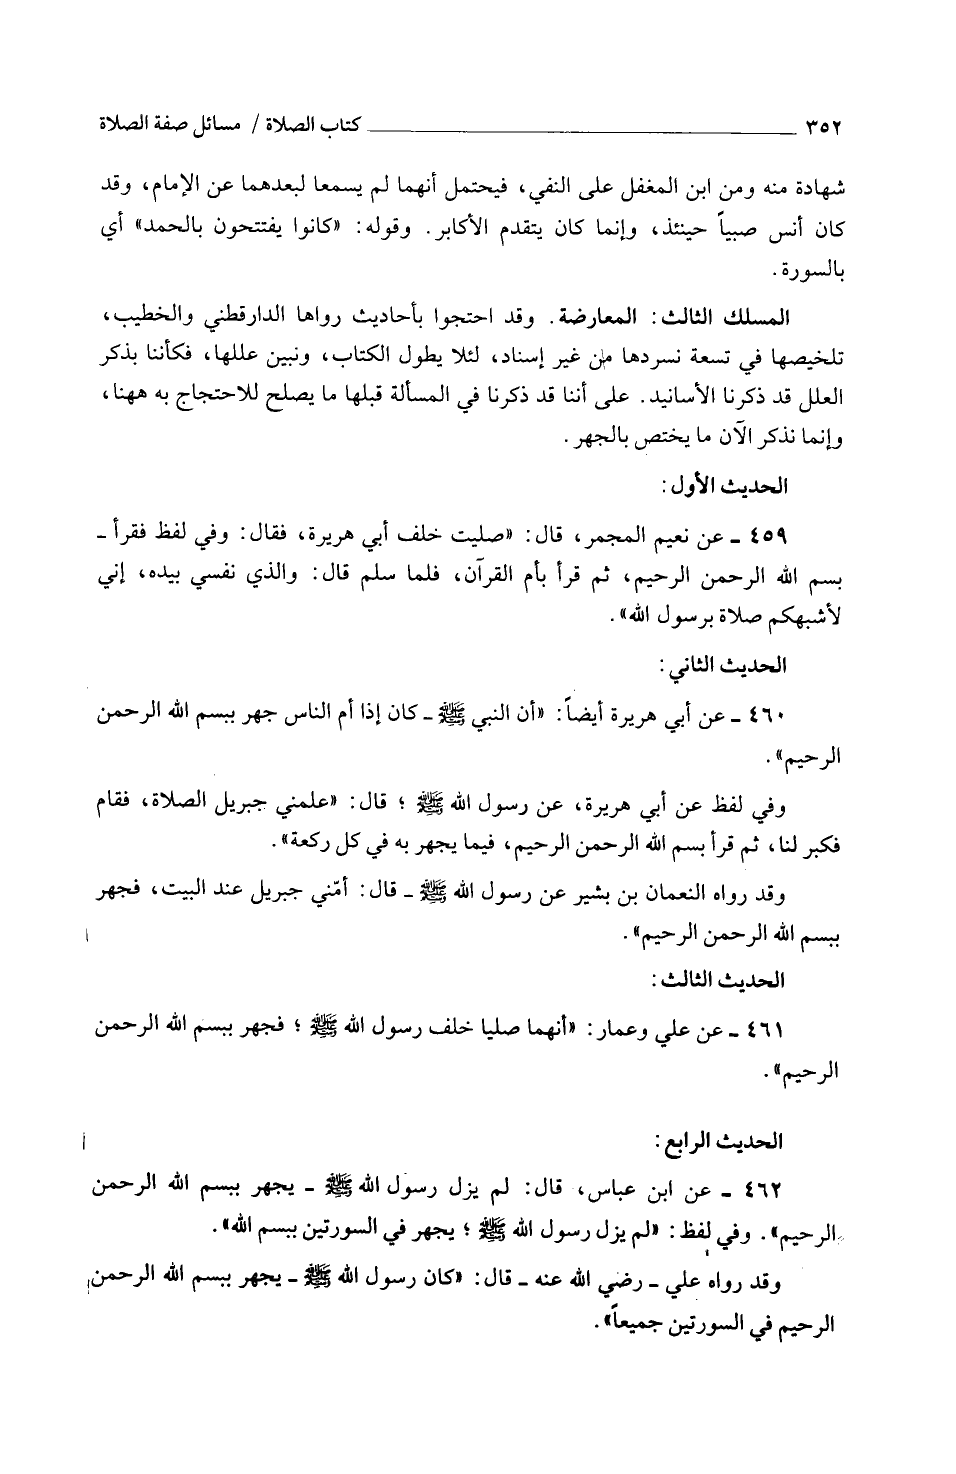 ٣٥٢ ــــــ كتاب الصلاة / مسائل صفة الصلاة
شهادة منه ومن ابن المغفل على النفي، فيحتمل أنهما لم يسمعا لبعدهما عن الإمام، وقد
كان أنس صبياً حينئذ، وإنما كان يتقدم الأكابر. وقوله: «كانوا يفتتحون بالحمد» أي
بالسورة.
المسلك الثالث: المعارضة. وقد احتجوا بأحاديث رواها الدارقطني والخطيب،
تلخيصها في تسعة نسردها من غير إسناد، لئلا يطول الكتاب، ونبين عللها، فكأننا بذكر
العلل قد ذكرنا الأسانيد. على أننا قد ذكرنا في المسألة قبلها ما يصلح للاحتجاج به ههنا،
وإنما نذكر الآن ما يختص بالجهر.
الحديث الأول:
٤٥٩ ـ عن نعيم المجمر، قال: «صليت خلف أبي هريرة، فقال: وفي لفظ فقرأ ـ
بسم الله الرحمن الرحيم، ثم قرأ بأم القرآن، فلما سلم قال: والذي نفسي بيده، إني
لأشبهكم صلاة برسول الله».
الحديث الثاني:
٤٦٠ ـ عن أبي هريرة أيضاً: «أن النبي ﷺ ـ كان إذا أم الناس جهر ببسم الله الرحمن
الرحيم».
وفي لفظ عن أبي هريرة، عن رسول الله ﷺ ؛ قال: «علمني جبريل الصلاة، فقام
فكبر لنا، ثم قرأ بسم الله الرحمن الرحيم، فيما يجهر به في كل ركعة».
وقد رواه النعمان بن بشير عن رسول الله ﷺ ـ قال: أمّني جبريل عند البيت، فجهر
ببسم الله الرحمن الرحيم».
الحديث الثالث:
٤٦١ ـ عن علي وعمار: «أنهما صليا خلف رسول الله ﷺ ؛ فجهر ببسم الله الرحمن
الرحيم».
الحديث الرابع:
٤٦٢ ـ عن ابن عباس، قال: لم يزل رسول الله ﷺ ـ يجهر ببسم الله الرحمن
الرحيم». وفي لفظ: «لم يزل رسول الله ﷺ ؛ يجهر في السورتين ببسم الله».
وقد رواه علي ـ رضي الله عنه ـ قال: «كان رسول الله ﷺ ـ يجهر ببسم الله الرحمن
الرحيم في السورتين جميعاً».